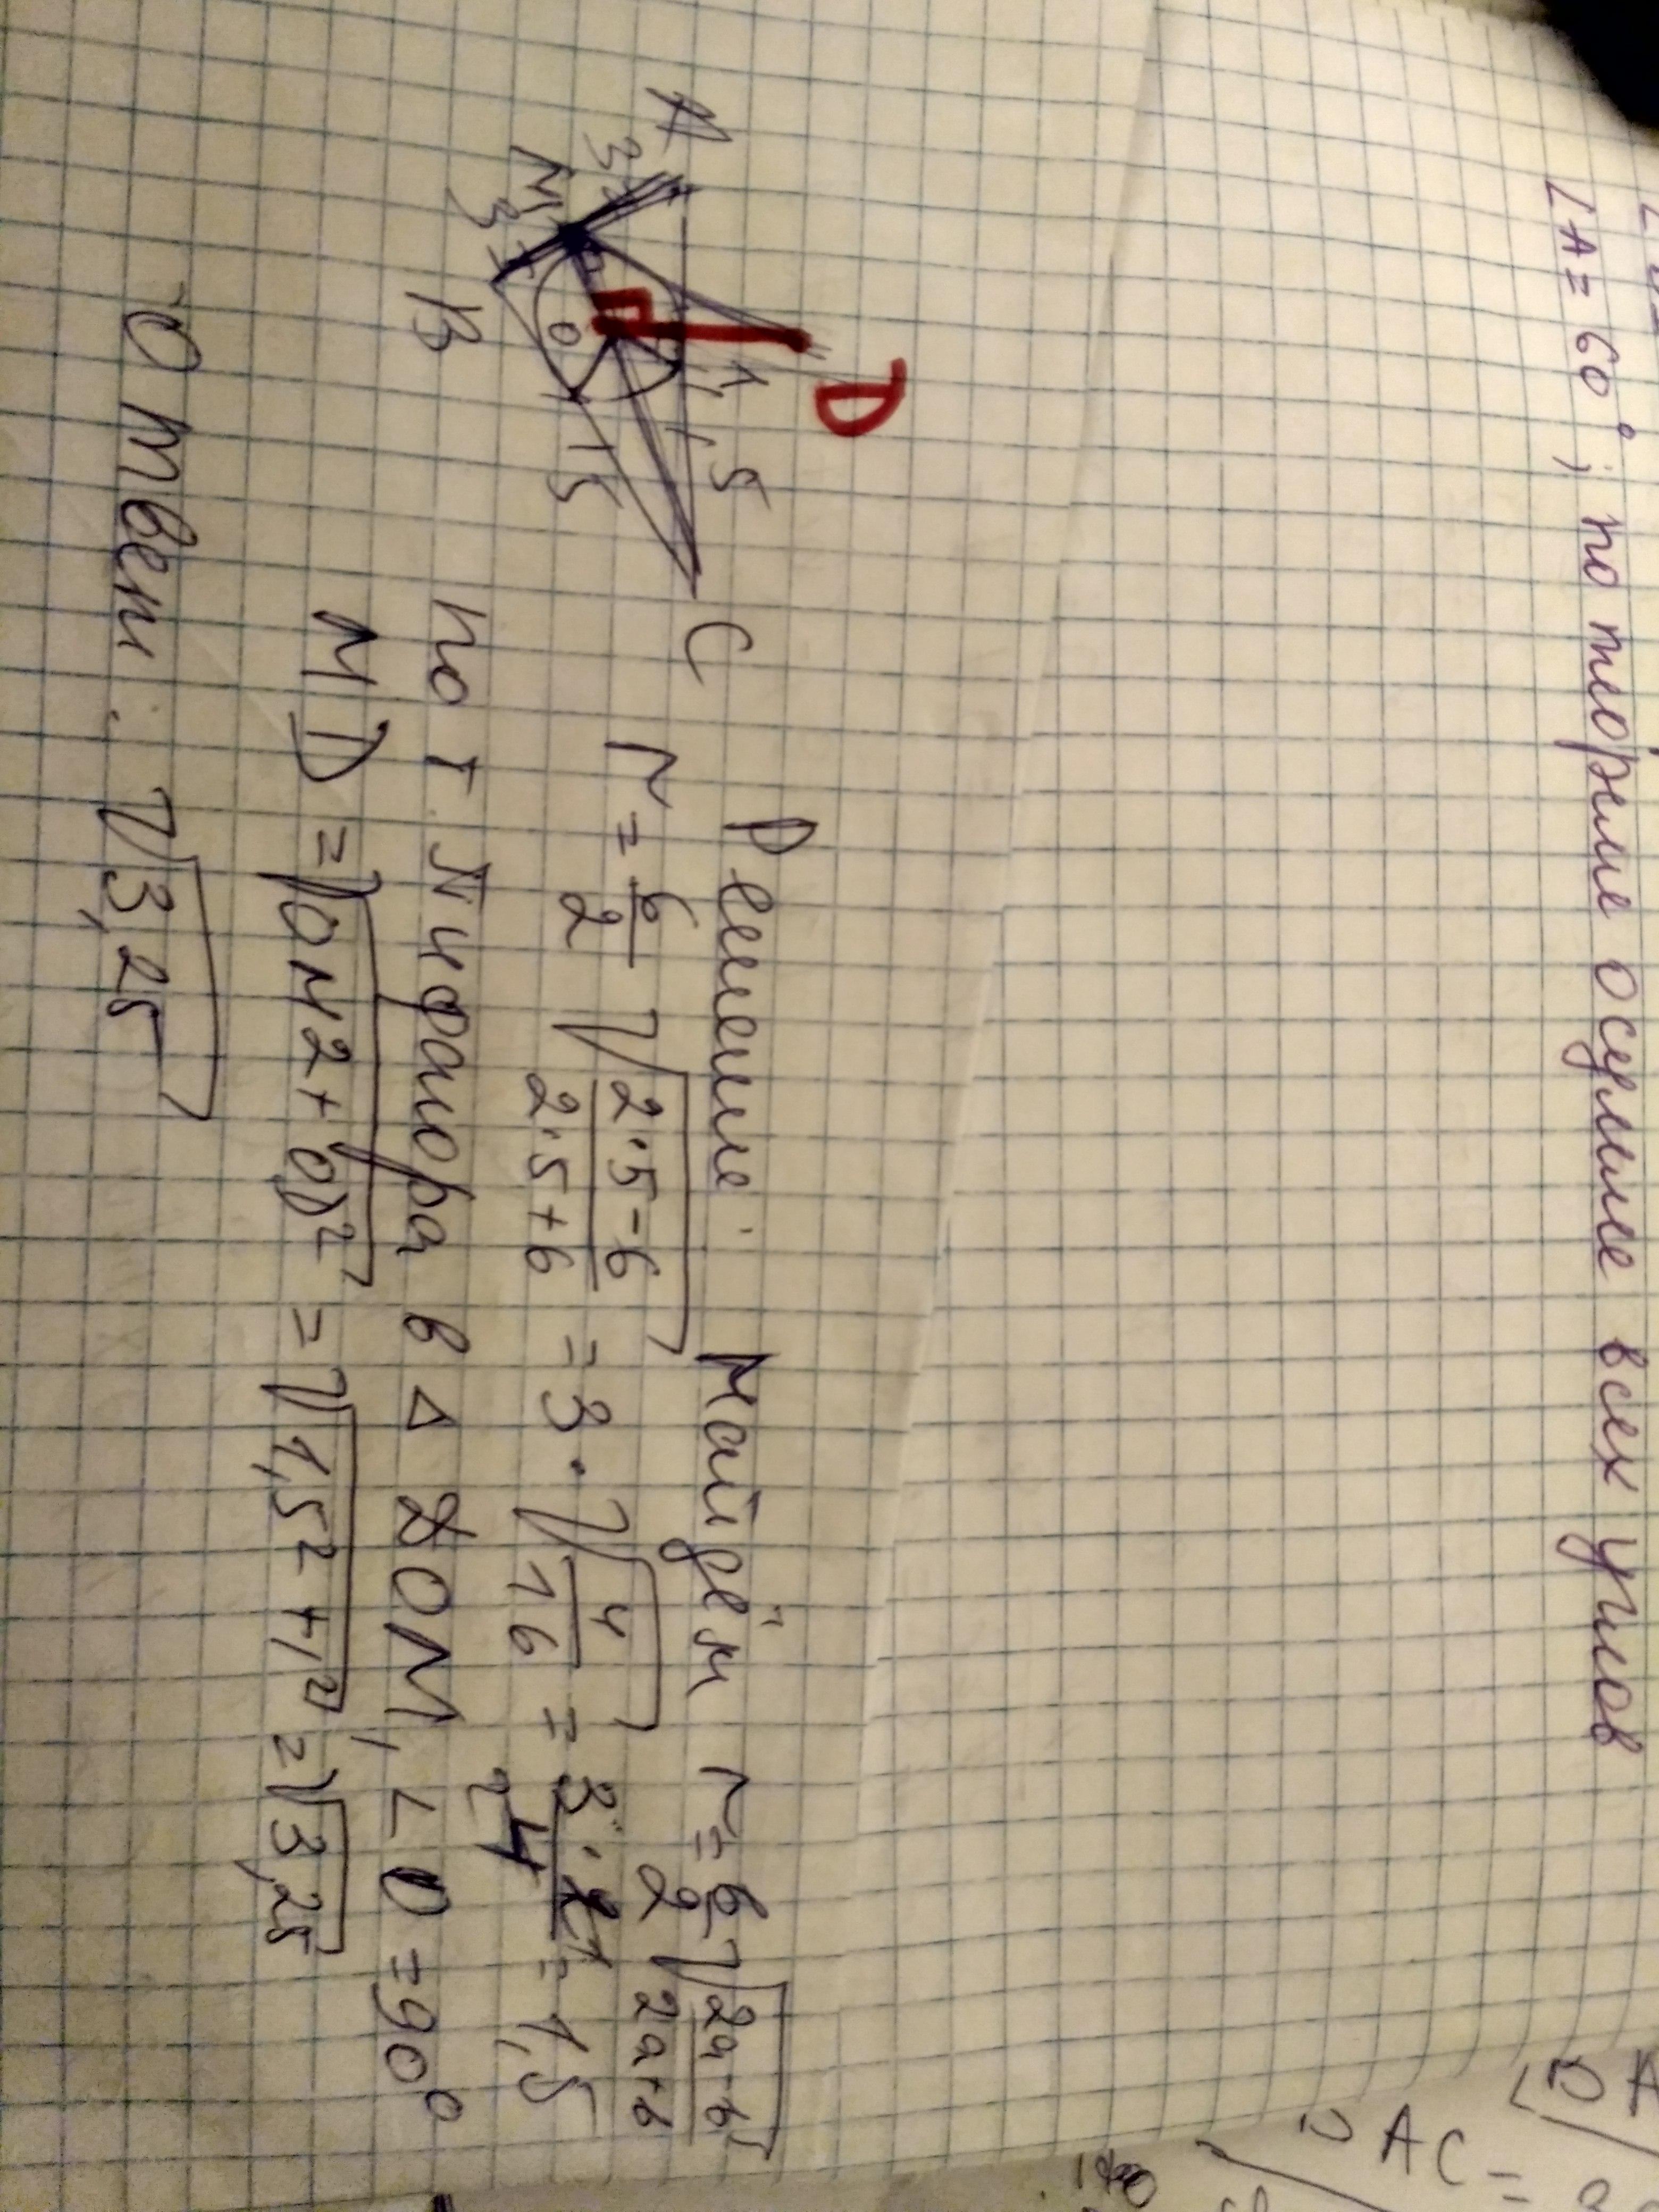 ∠A = 60°, по теореме о сумме всех углов
A
3
M
3
B
O
D
1
5
5
C
Решение: Найдём r = b/2 √((2a-b)/(2a+b))
r = 6/2 √((2·5-6)/(2·5+6)) = 3·√(4/16) = 1,5
По т. Пифагора в Δ DOM, ∠O = 90°
MD = √(OM2 + OD²) = √(1,5² + 1²) = √3,25
Ответ: √3,25
AC =